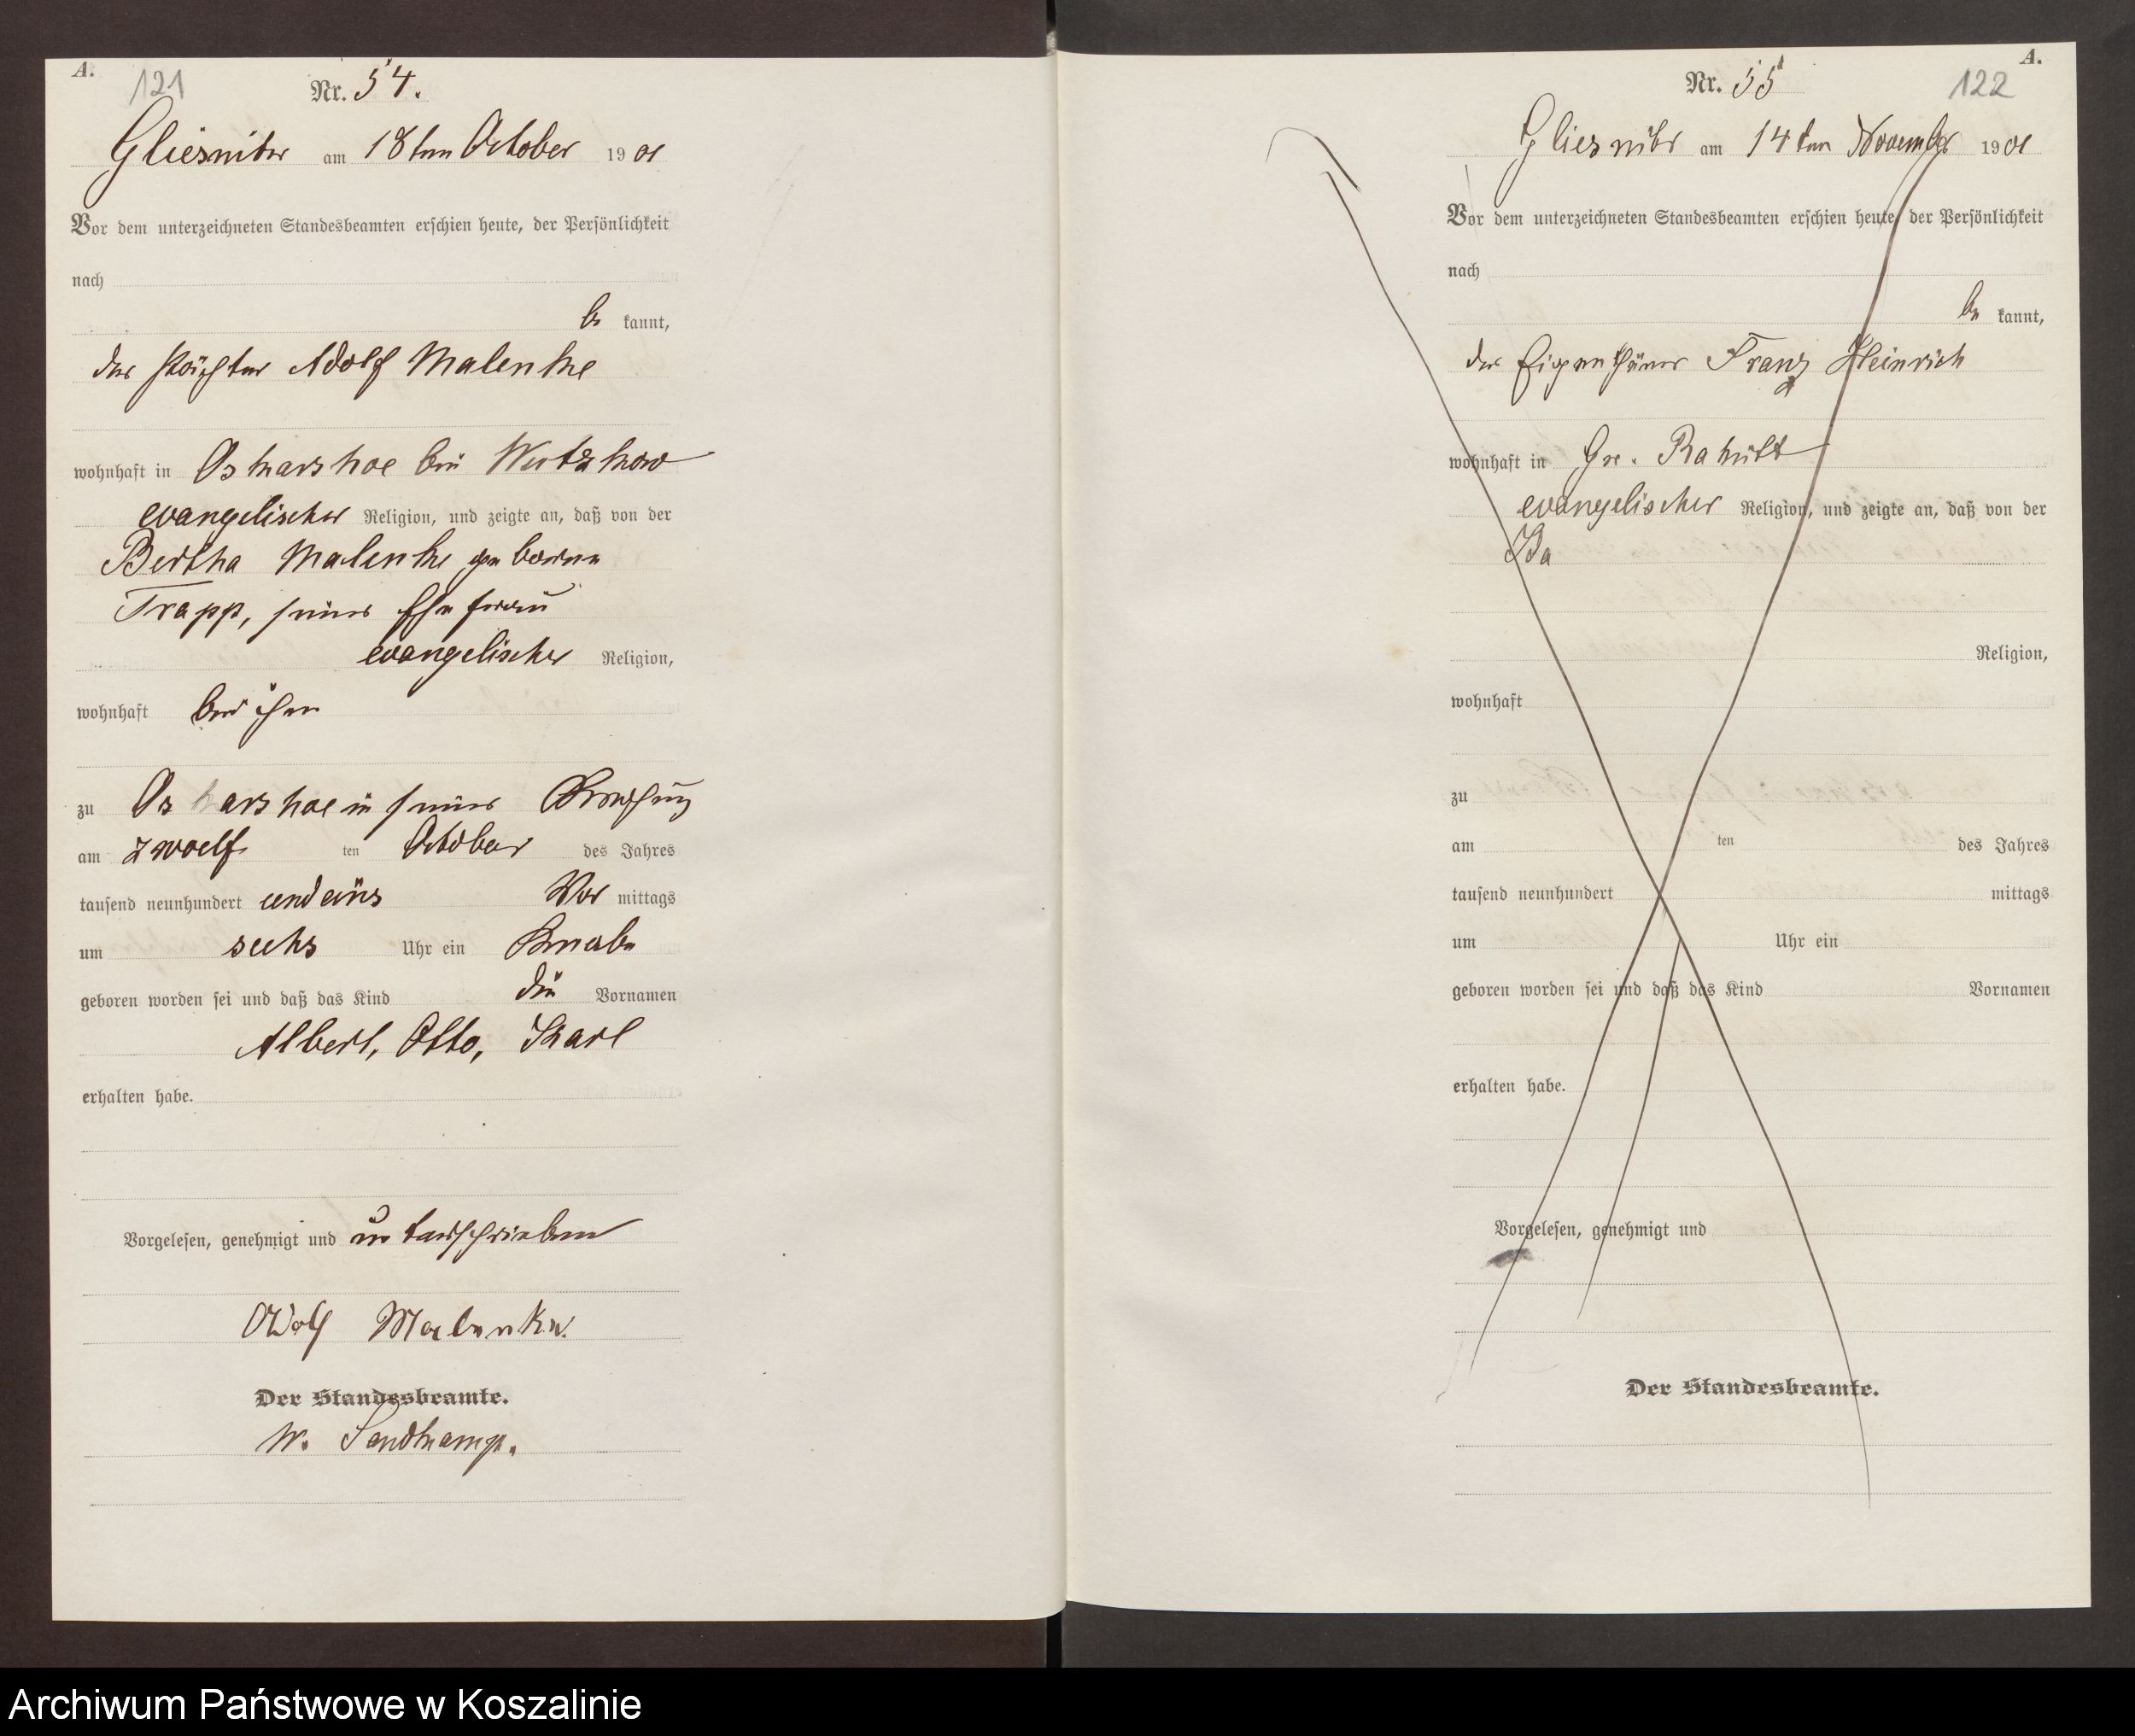 A.
121
Nr. 54.
Gliesnitz am 18ten October 1901
Vor dem unterzeichneten Standesbeamten erschien heute, der Persönlichkeit
nach
be kannt,
der Pächter Adolf Malenke
wohnhaft in Oskarshoe bei Wutzkow
evangelischer Religion, und zeigte an, daß von der
Bertha Malenke geborne
Trapp, seiner Ehefrau
evangelischer Religion,
wohnhaft bei ihm
zu Oskarshoe in seiner Behausung
am zwoelf ten October des Jahres
tausend neunhundert und eins Vor mittags
um sechs Uhr ein Knabe
geboren worden sei und daß das Kind die Vornamen
Albert, Otto, Karl
erhalten habe.
Vorgelesen, genehmigt und unterschrieben
Adolf Malenke.
Der Standesbeamte.
W. Sandkamp.
A.
Nr. 55
122
Gliesnitz am 14ten November 1901
Vor dem unterzeichneten Standesbeamten erschien heute, der Persönlichkeit
nach
be kannt,
der Eigenthümer Franz Heinrich
wohnhaft in Gr. Rakitt
evangelischer Religion, und zeigte an, daß von der
Religion,
wohnhaft
zu
am ten des Jahres
tausend neunhundert mittags
um Uhr ein
geboren worden sei und daß das Kind Vornamen
erhalten habe.
Vorgelesen, genehmigt und
Der Standesbeamte.
Archiwum Państwowe w Koszalinie